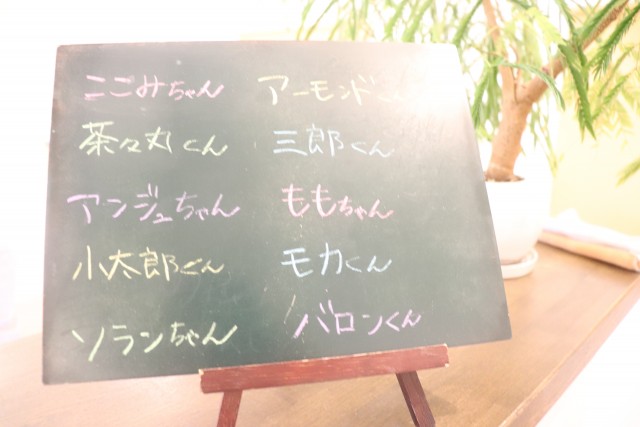 ここみちゃん
茶々丸くん
アンジュちゃん
小太郎くん
ソランちゃん
アーモンドくん
三郎くん
ももちゃん
モカくん
バロンくん